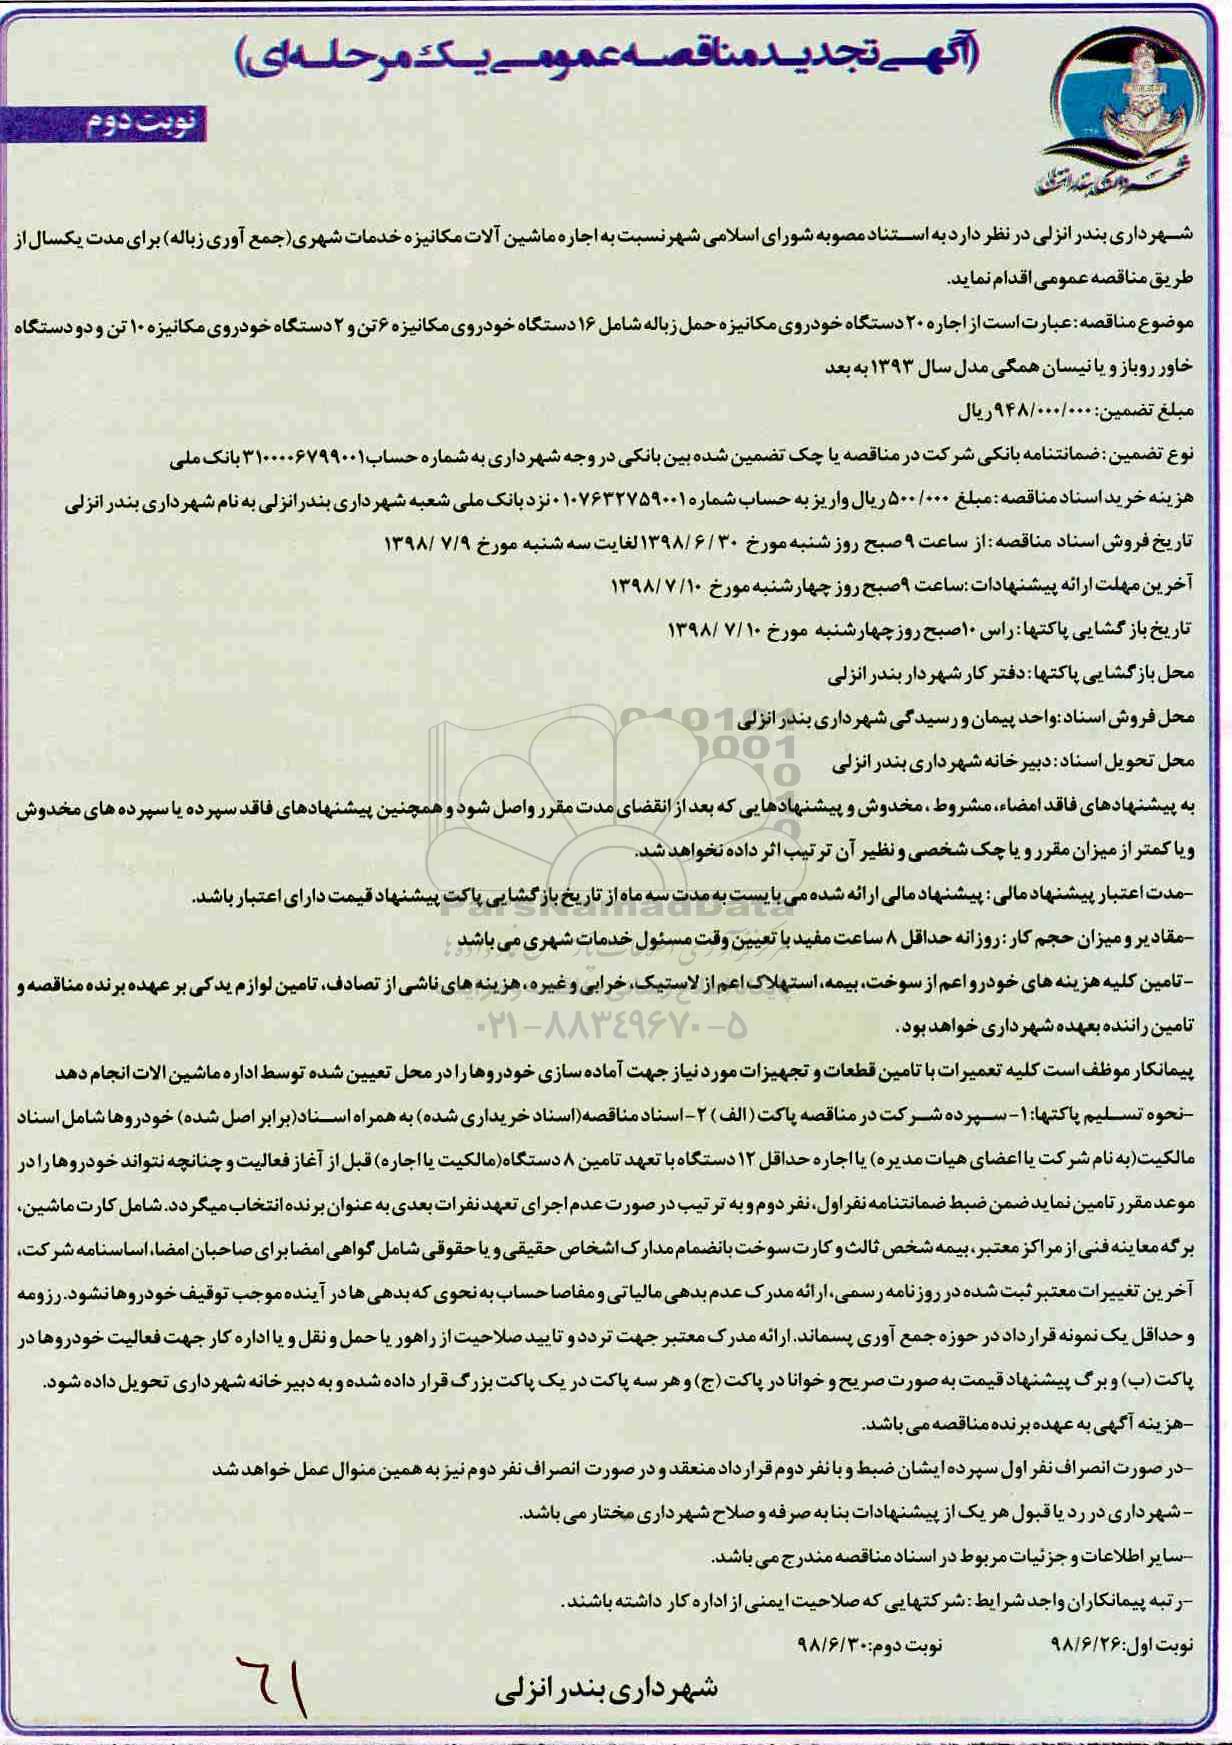 (آگهی تجدید مناقصه عمومی یک مرحله‌ای)
شهرداری بندر انزلی
نوبت دوم
شهرداری بندر انزلی در نظر دارد به استناد مصوبه شورای اسلامی شهر نسبت به اجاره ماشین آلات مکانیزه خدمات شهری(جمع آوری زباله) برای مدت یکسال از
طریق مناقصه عمومی اقدام نماید.
موضوع مناقصه: عبارت است از اجاره ۲۰ دستگاه خودروی مکانیزه حمل زباله شامل ۱۶ دستگاه خودروی مکانیزه ۶ تن و ۲ دستگاه خودروی مکانیزه ۱۰ تن و دو دستگاه
خاور روباز و یا نیسان همگی مدل سال ۱۳۹۳ به بعد
مبلغ تضمین: ۹۴۸/۰۰۰/۰۰۰ ریال
نوع تضمین: ضمانتنامه بانکی شرکت در مناقصه یا چک تضمین شده بین بانکی در وجه شهرداری به شماره حساب ۳۱۰۰۰۰۶۷۹۹۰۰۱ بانک ملی
هزینه خرید اسناد مناقصه: مبلغ ۵۰۰/۰۰۰ ریال واریز به حساب شماره ۰۱۰۷۶۳۲۷۵۹۰۰۱ نزد بانک ملی شعبه شهرداری بندر انزلی به نام شهرداری بندر انزلی
تاریخ فروش اسناد مناقصه: از ساعت ۹ صبح روز شنبه مورخ ۱۳۹۸/۶/۳۰ لغایت سه شنبه مورخ ۱۳۹۸/۷/۹
آخرین مهلت ارائه پیشنهادات: ساعت ۹ صبح روز چهارشنبه مورخ ۱۳۹۸/۷/۱۰
تاریخ باز گشایی پاکتها: راس ۱۰ صبح روز چهارشنبه مورخ ۱۳۹۸/۷/۱۰
محل بازگشایی پاکتها: دفتر کار شهردار بندر انزلی
محل فروش اسناد: واحد پیمان و رسیدگی شهرداری بندر انزلی
محل تحویل اسناد: دبیرخانه شهرداری بندر انزلی
به پیشنهادهای فاقد امضاء، مشروط، مخدوش و پیشنهادهایی که بعد از انقضای مدت مقرر واصل شود و همچنین پیشنهادهای فاقد سپرده یا سپرده های مخدوش
و یا کمتر از میزان مقرر و یا چک شخصی و نظیر آن ترتیب اثر داده نخواهد شد.
-مدت اعتبار پیشنهاد مالی: پیشنهاد مالی ارائه شده می بایست به مدت سه ماه از تاریخ بازگشایی پاکت پیشنهاد قیمت دارای اعتبار باشد.
ParsNamadData
-مقادیر و میزان حجم کار: روزانه حداقل ۸ ساعت مفید با تعیین وقت مسئول خدمات شهری می باشد
-تامین کلیه هزینه های خودرو اعم از سوخت، بیمه، استهلاک اعم از لاستیک، خرابی و غیره، هزینه های ناشی از تصادف، تامین لوازم یدکی بر عهده برنده مناقصه و
تامین راننده بعهده شهرداری خواهد بود.
۰۲۱-۸۸۳۴۹۶۷۰-۵
پیمانکار موظف است کلیه تعمیرات با تامین قطعات و تجهیزات مورد نیاز جهت آماده سازی خودروها را در محل تعیین شده توسط اداره ماشین الات انجام دهد
-نحوه تسلیم پاکتها: ۱- سپرده شرکت در مناقصه پاکت (الف) ۲- اسناد مناقصه(اسناد خریداری شده) به همراه اسناد(برابر اصل شده) خودروها شامل اسناد
مالکیت(به نام شرکت یا اعضای هیات مدیره) یا اجاره حداقل ۱۲ دستگاه با تعهد تامین ۸ دستگاه(مالکیت یا اجاره) قبل از آغاز فعالیت و چنانچه نتواند خودروها را در
موعد مقرر تامین نماید ضمن ضبط ضمانتنامه نفر اول، نفر دوم و به ترتیب در صورت عدم اجرای تعهد نفرات بعدی به عنوان برنده انتخاب میگردد. شامل کارت ماشین،
برگه معاینه فنی از مراکز معتبر، بیمه شخص ثالث و کارت سوخت بانضمام مدارک اشخاص حقیقی و یا حقوقی شامل گواهی امضا برای صاحبان امضا، اساسنامه شرکت،
آخرین تغییرات معتبر ثبت شده در روزنامه رسمی، ارائه مدرک عدم بدهی مالیاتی و مفاصا حساب به نحوی که بدهی ها در آینده موجب توقیف خودروها نشود. رزومه
و حداقل یک نمونه قرارداد در حوزه جمع آوری پسماند. ارائه مدرک معتبر جهت تردد و تایید صلاحیت از راهور یا حمل و نقل و یا اداره کار جهت فعالیت خودروها در
پاکت (ب) و برگ پیشنهاد قیمت به صورت صریح و خوانا در پاکت (ج) و هر سه پاکت در یک پاکت بزرگ قرار داده شده و به دبیرخانه شهرداری تحویل داده شود.
-هزینه آگهی به عهده برنده مناقصه می باشد.
-در صورت انصراف نفر اول سپرده ایشان ضبط و با نفر دوم قرارداد منعقد و در صورت انصراف نفر دوم نیز به همین منوال عمل خواهد شد
- شهرداری در رد یا قبول هر یک از پیشنهادات بنا به صرفه و صلاح شهرداری مختار می باشد.
-سایر اطلاعات و جزئیات مربوط در اسناد مناقصه مندرج می باشد.
-رتبه پیمانکاران واجد شرایط: شرکتهایی که صلاحیت ایمنی از اداره کار داشته باشند.
نوبت اول: ۹۸/۶/۲۶ نوبت دوم: ۹۸/۶/۳۰
شهرداری بندر انزلی
۶۱